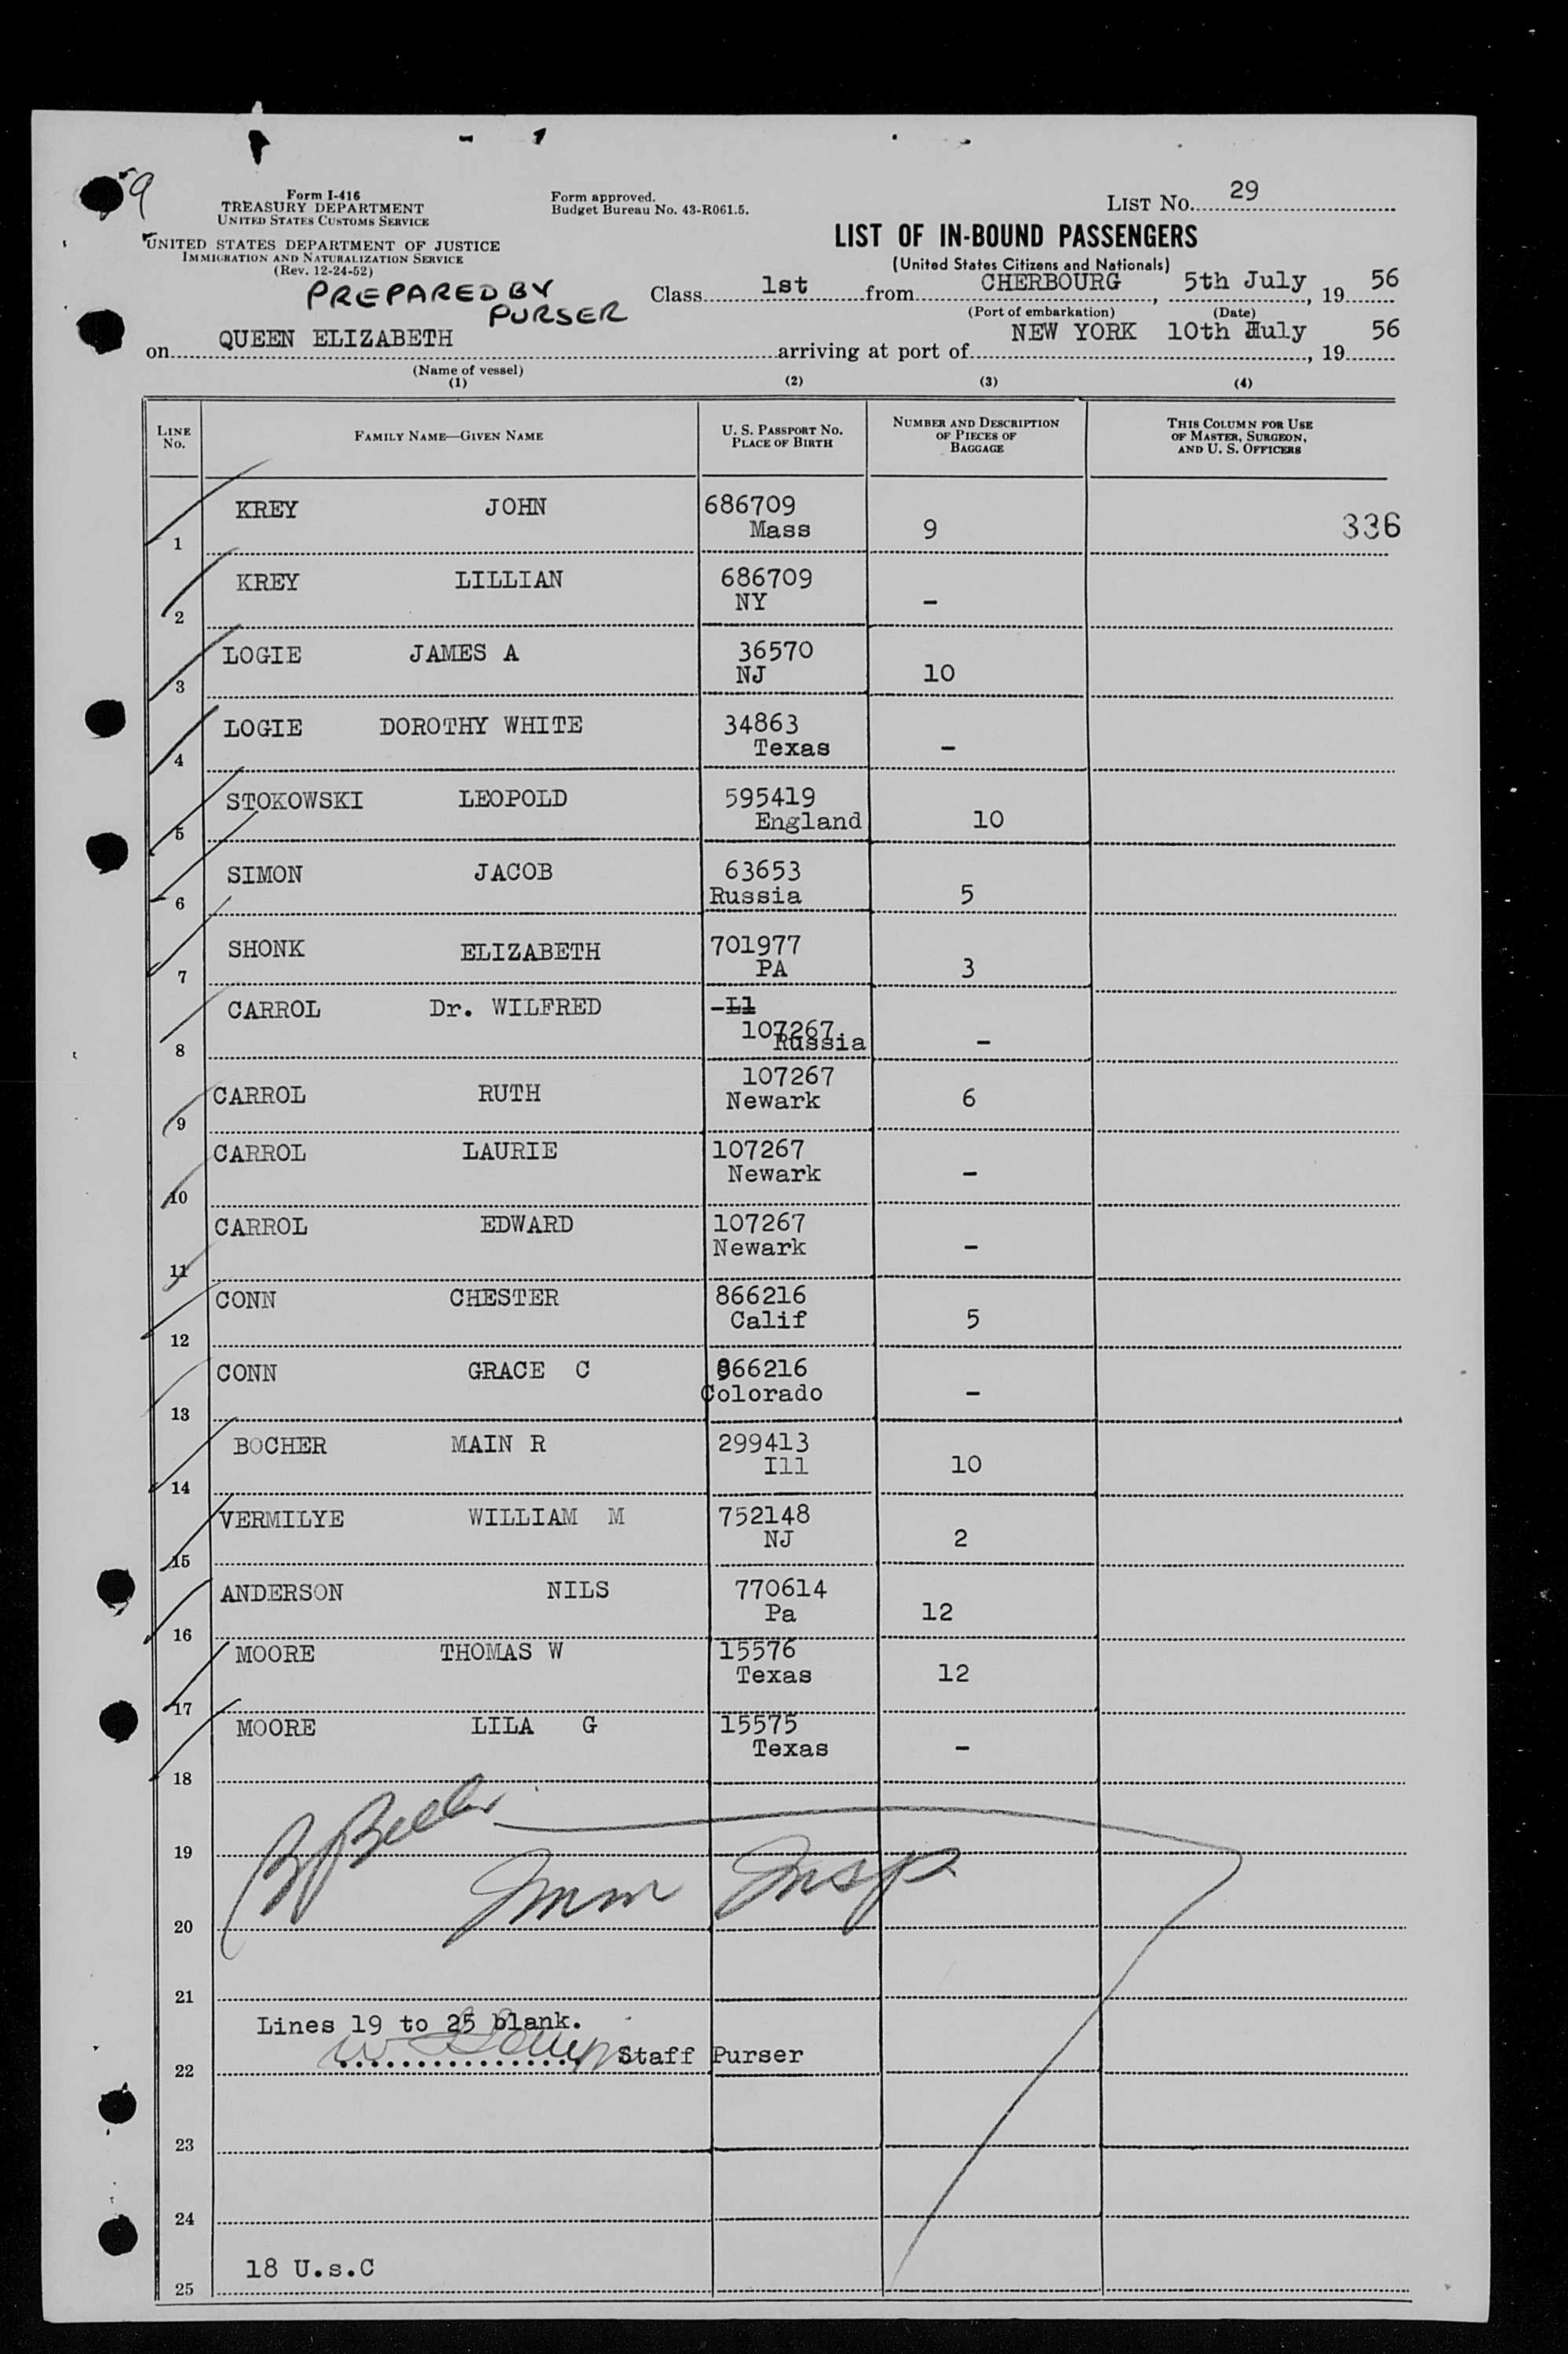 59
Form I-416
TREASURY DEPARTMENT
UNITED STATES CUSTOMS SERVICE
UNITED STATES DEPARTMENT OF JUSTICE
IMMIGRATION AND NATURALIZATION SERVICE
(Rev. 12-24-52)
Form approved.
Budget Bureau No. 43-R061.5.
LIST No. 29
LIST OF IN-BOUND PASSENGERS
(United States Citizens and Nationals)
PREPARED BY
PURSER
Class 1st from CHERBOURG, 5th July, 19 56
(Port of embarkation) (Date)
on QUEEN ELIZABETH arriving at port of NEW YORK 10th July, 19 56
(Name of vessel)
(1) (2) (3) (4)
LINE No. FAMILY NAME—GIVEN NAME U. S. PASSPORT NO. PLACE OF BIRTH NUMBER AND DESCRIPTION OF PIECES OF BAGGAGE THIS COLUMN FOR USE OF MASTER, SURGEON, AND U. S. OFFICERS
1 KREY JOHN 686709 Mass 9 336
2 KREY LILLIAN 686709 NY -
3 LOGIE JAMES A 36570 NJ 10
4 LOGIE DOROTHY WHITE 34863 Texas -
5 STOKOWSKI LEOPOLD 595419 England 10
6 SIMON JACOB 63653 Russia 5
7 SHONK ELIZABETH 701977 PA 3
8 CARROL Dr. WILFRED 107267 Russia -
9 CARROL RUTH 107267 Newark 6
10 CARROL LAURIE 107267 Newark -
11 CARROL EDWARD 107267 Newark -
12 CONN CHESTER 866216 Calif 5
13 CONN GRACE C 866216 Colorado -
14 BOCHER MAIN R 299413 Ill 10
15 VERMILYE WILLIAM M 752148 NJ 2
16 ANDERSON NILS 770614 Pa 12
17 MOORE THOMAS W 15576 Texas 12
18 MOORE LILA G 15575 Texas -
19
Imm Insp
20
21
Lines 19 to 25 blank.
Staff Purser
22
23
24
18 U.s.C
25